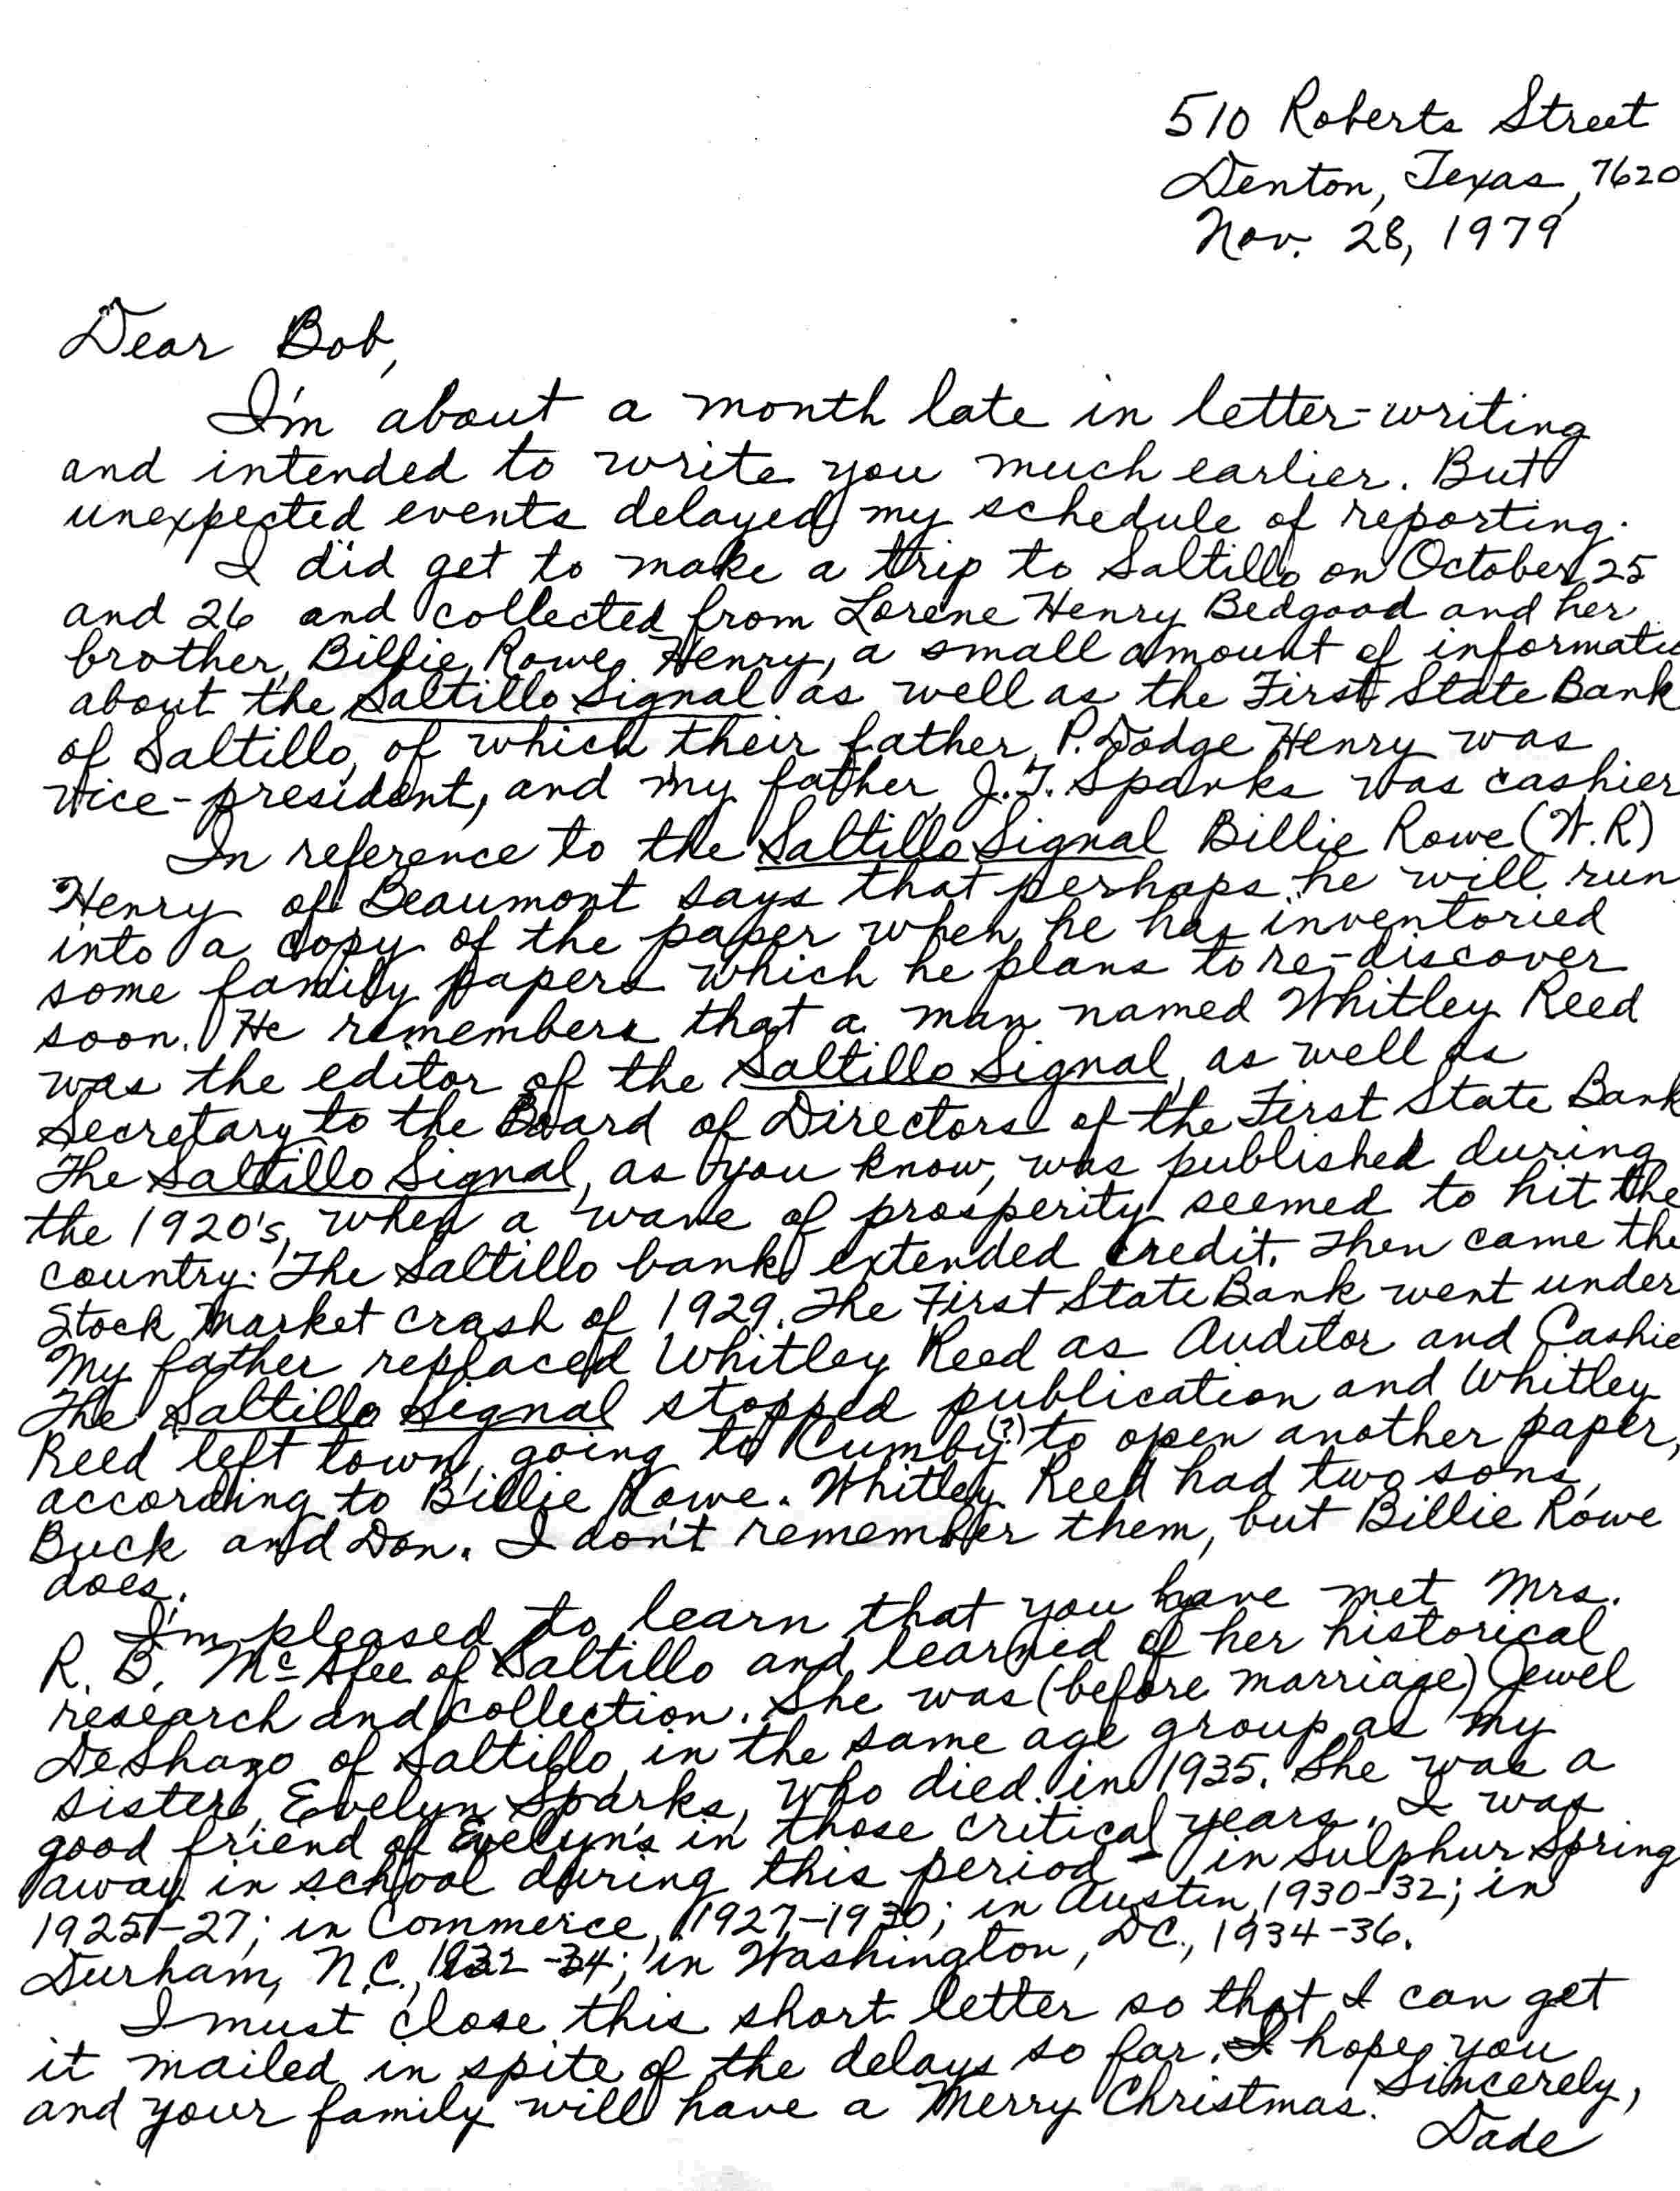 510 Roberts Street
Denton, Texas, 7620
Nov. 28, 1979
Dear Bob,
I'm about a month late in letter-writing
and intended to write you much earlier. But
unexpected events delayed my schedule of reporting.
I did get to make a trip to Saltillo on October 25
and 26 and collected from Lorene Henry Bedgood and her
brother, Billie Rowe Henry, a small amount of informatio
about the Saltillo Signal as well as the First State Bank
of Saltillo, of which their father, P. Dodge Henry was
vice-president, and my father, J.T. Sparks was cashier
In reference to the Saltillo Signal Billie Rowe (W.R)
Henry of Beaumont says that perhaps he will run
into a copy of the paper when he has inventoried
some family papers which he plans to re-discover
soon. He remembers that a man named Whitley Reed
was the editor of the Saltillo Signal, as well as
Secretary to the Board of Directors of the First State Bank
The Saltillo Signal, as you know, was published during
the 1920's, when a wave of prosperity seemed to hit the
country. The Saltillo bank extended credit. Then came the
Stock Market crash of 1929. The First State Bank went under
My father replaced Whitley Reed as Auditor and Cashie
The Saltillo Signal stopped publication and Whitley
Reed left town, going to Cumby(?) to open another paper,
according to Billie Rowe. Whitley Reed had two sons,
Buck and Don. I don't remember them, but Billie Rowe
does.
I'm pleased to learn that you have met Mrs.
R. B. McAfee of Saltillo and learned of her historical
research and collection. She was (before marriage) Jewel
DeShazo of Saltillo, in the same age group as my
sister, Evelyn Sparks, who died in 1935. She was a
good friend of Evelyn's in those critical years. I was
away in school during this period - in Sulphur Spring
1925-27; in Commerce, 1927-1930; in Austin, 1930-32; in
Durham, N.C., 1932-34; in Washington, DC., 1934-36.
I must close this short letter so that I can get
it mailed in spite of the delays so far. I hope you
and your family will have a Merry Christmas.
Sincerely,
Dade